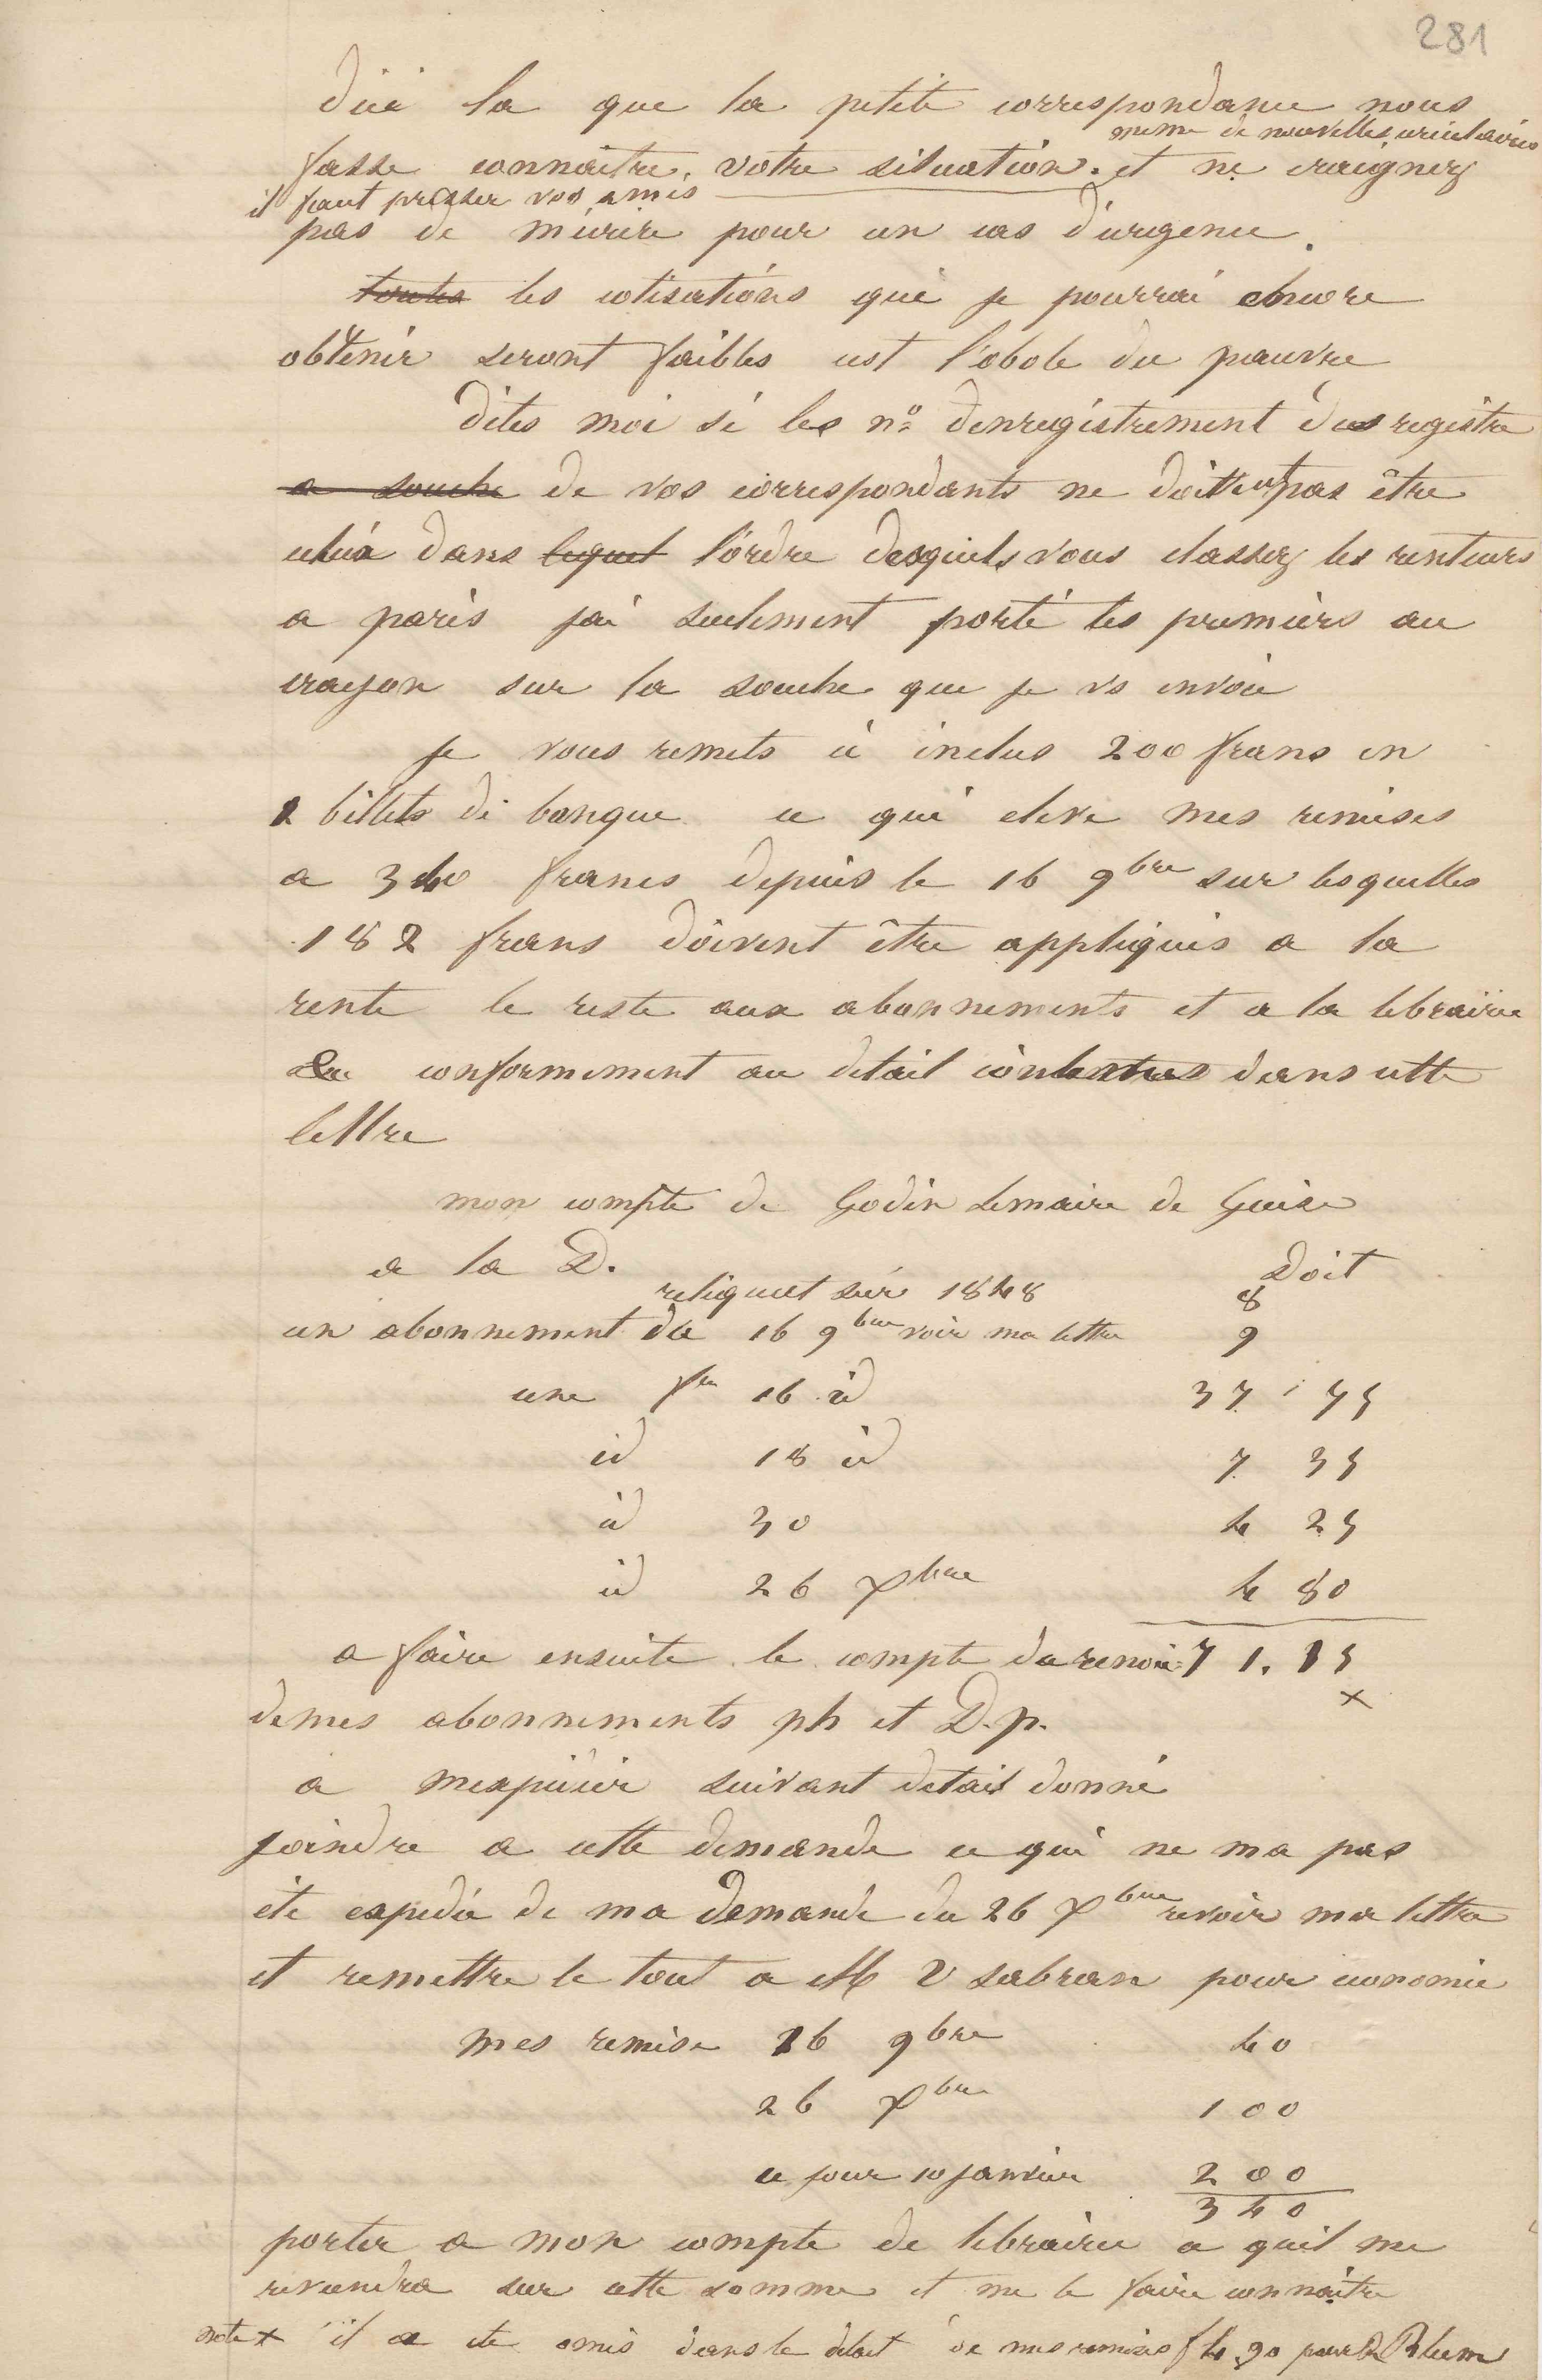 281
dici la que la petite correspondance nous
meme de nouvelles circulaires
fasse connaitre votre situation. et ne craignez
il faut presser vos amis
pas de mecrire pour un cas d'urgence.
toutes les cotisations que je pourrai encore
obtenir seront faibles cest l'obole du pauvre
dites moi si les nos denregistrement des registre
a souche de vos correspondants ne doivent pas être
celui dans lequel l'ordre desquels vous classez les renteurs
a paris jai seulement porté les premiers au
crayon sur la souche que je vs envoie
je vous remets ci inclus 200 frans en
2 billets de banque ce qui eleve mes remises
a 340 francs depuis le 16 9bre sur lesquelles
182 frans doivent être appliqués a la
rente le reste aux abonnements et a la librairie
conformement au detail dans cette
lettre
mon compte de Godin Lemaire de Guise
a la D. Doit
reliquat sur 1848 8
un abonnement du 16 9bre voir ma lettre 9
une fre 16 id 37 75
id 18 id 7 35
id 30 4 25
id 26 Xbre 4 80
a faire ensuite le compte du renvoi 71. 15
x
de mes abonnements ph et D. p.
a mexpédier suivant detail donné
joindre a cette demande ce qui ne ma pas
éte expedié de ma demande du 26 Xbre revoir ma lettre
et remettre le tout a M V Sabran pour economie
mes remise 16 9bre 40
26 Xbre 100
ce jour 10 janvier 200
340
porter a mon compte de librairie ce quil me
reviendra sur cette somme et me le faire connaître
note x il a ete omis dans le debit de mes remises f 4.90 pour Blum